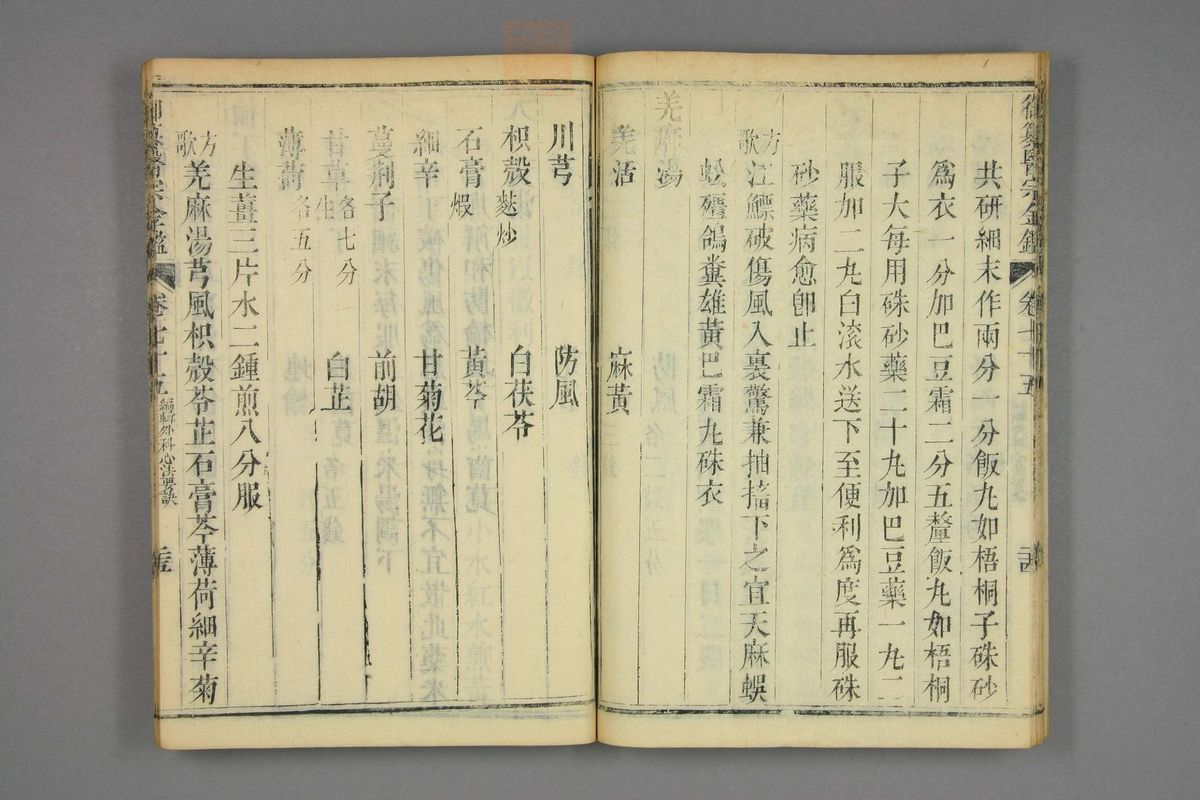 御纂醫宗金鑑
卷七十五
共研細末作兩分一分飯丸如梧桐子硃砂
為衣一分加巴豆霜二分五釐飯丸如梧桐
子大每用硃砂藥二十丸加巴豆藥一丸二
服加二丸白滾水送下至便利為度再服硃
砂藥病愈卽止
方歌
江鰾破傷風入裏驚兼抽搐下之宜天麻蜈
蚣殭鴿糞雄黃巴霜丸硃衣
羌麻湯
羌活 麻黃
川芎 防風
枳殼麩炒 白茯苓
石膏煅 黃芩
細辛 甘菊花
蔓荊子 前胡
甘草生各七分 白芷
薄荷各五分
生薑三片水二鍾煎八分服
方歌
羌麻湯芎風枳殼苓芷石膏芩薄荷細辛菊
御纂醫宗金鑑
卷七十五
編輯外科心法要訣